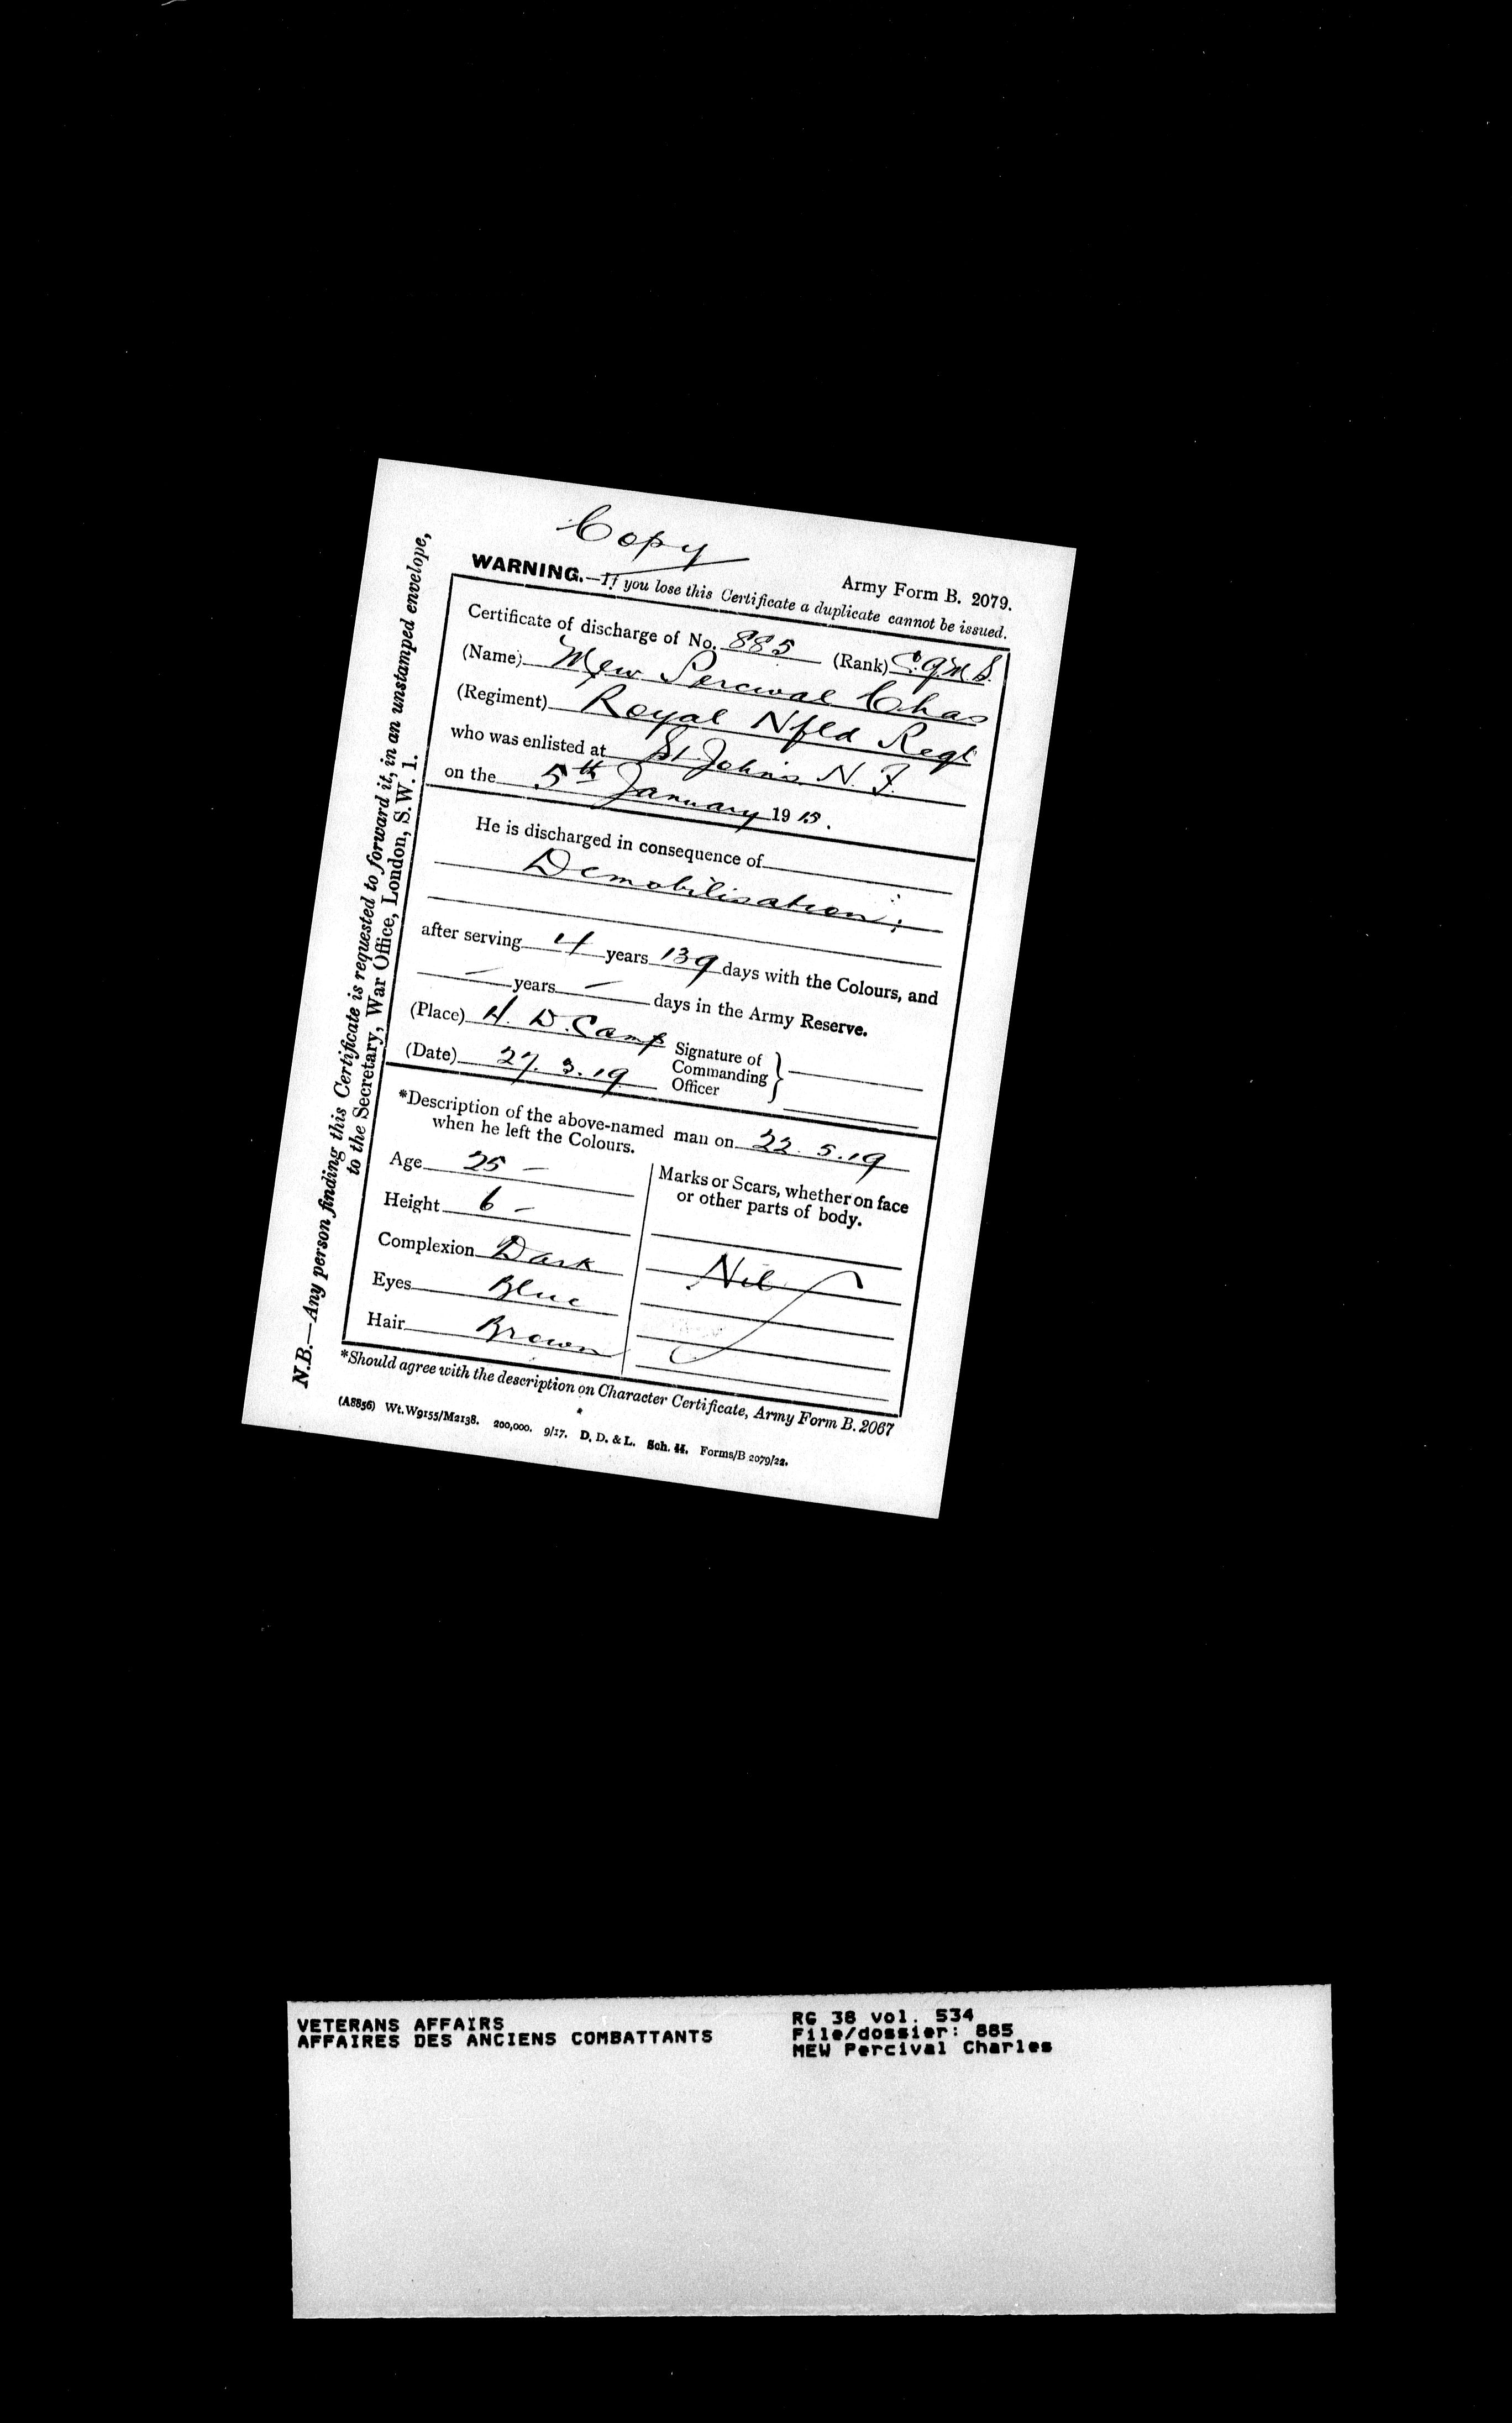 Copy
Army Form B. 2079.
WARNING.—If you lose this Certificate a duplicate cannot be issued.
Certificate of discharge of No. 885 (Rank) C.Q.M.S.
(Name) Mew Percival Chas
(Regiment) Royal Nfld Regt
who was enlisted at St Johns N. F.
on the 5th January 1915.
He is discharged in consequence of
Demobilisation;
after serving 4 years 139 days with the Colours, and
— years — days in the Army Reserve.
(Place) H. D. Camp Signature of
Commanding
Officer
(Date) 27. 3. 19
*Description of the above-named man on 22. 5. 19
when he left the Colours.
Age 25 —
Height 6 —
Complexion Dark
Eyes Blue
Hair Brown
Marks or Scars, whether on face
or other parts of body.
Nil
*Should agree with the description on Character Certificate, Army Form B. 2067
(A8856) Wt. W9155/M2138. 200,000. 9/17. D. D. & L. Sch. 44. Forms/B 2079/22.
N.B.—Any person finding this Certificate is requested to forward it, in an unstamped envelope,
to the Secretary, War Office, London, S.W. 1.
VETERANS AFFAIRS
AFFAIRES DES ANCIENS COMBATTANTS
RG 38 vol. 534
File/dossier: 885
MEW Percival Charles